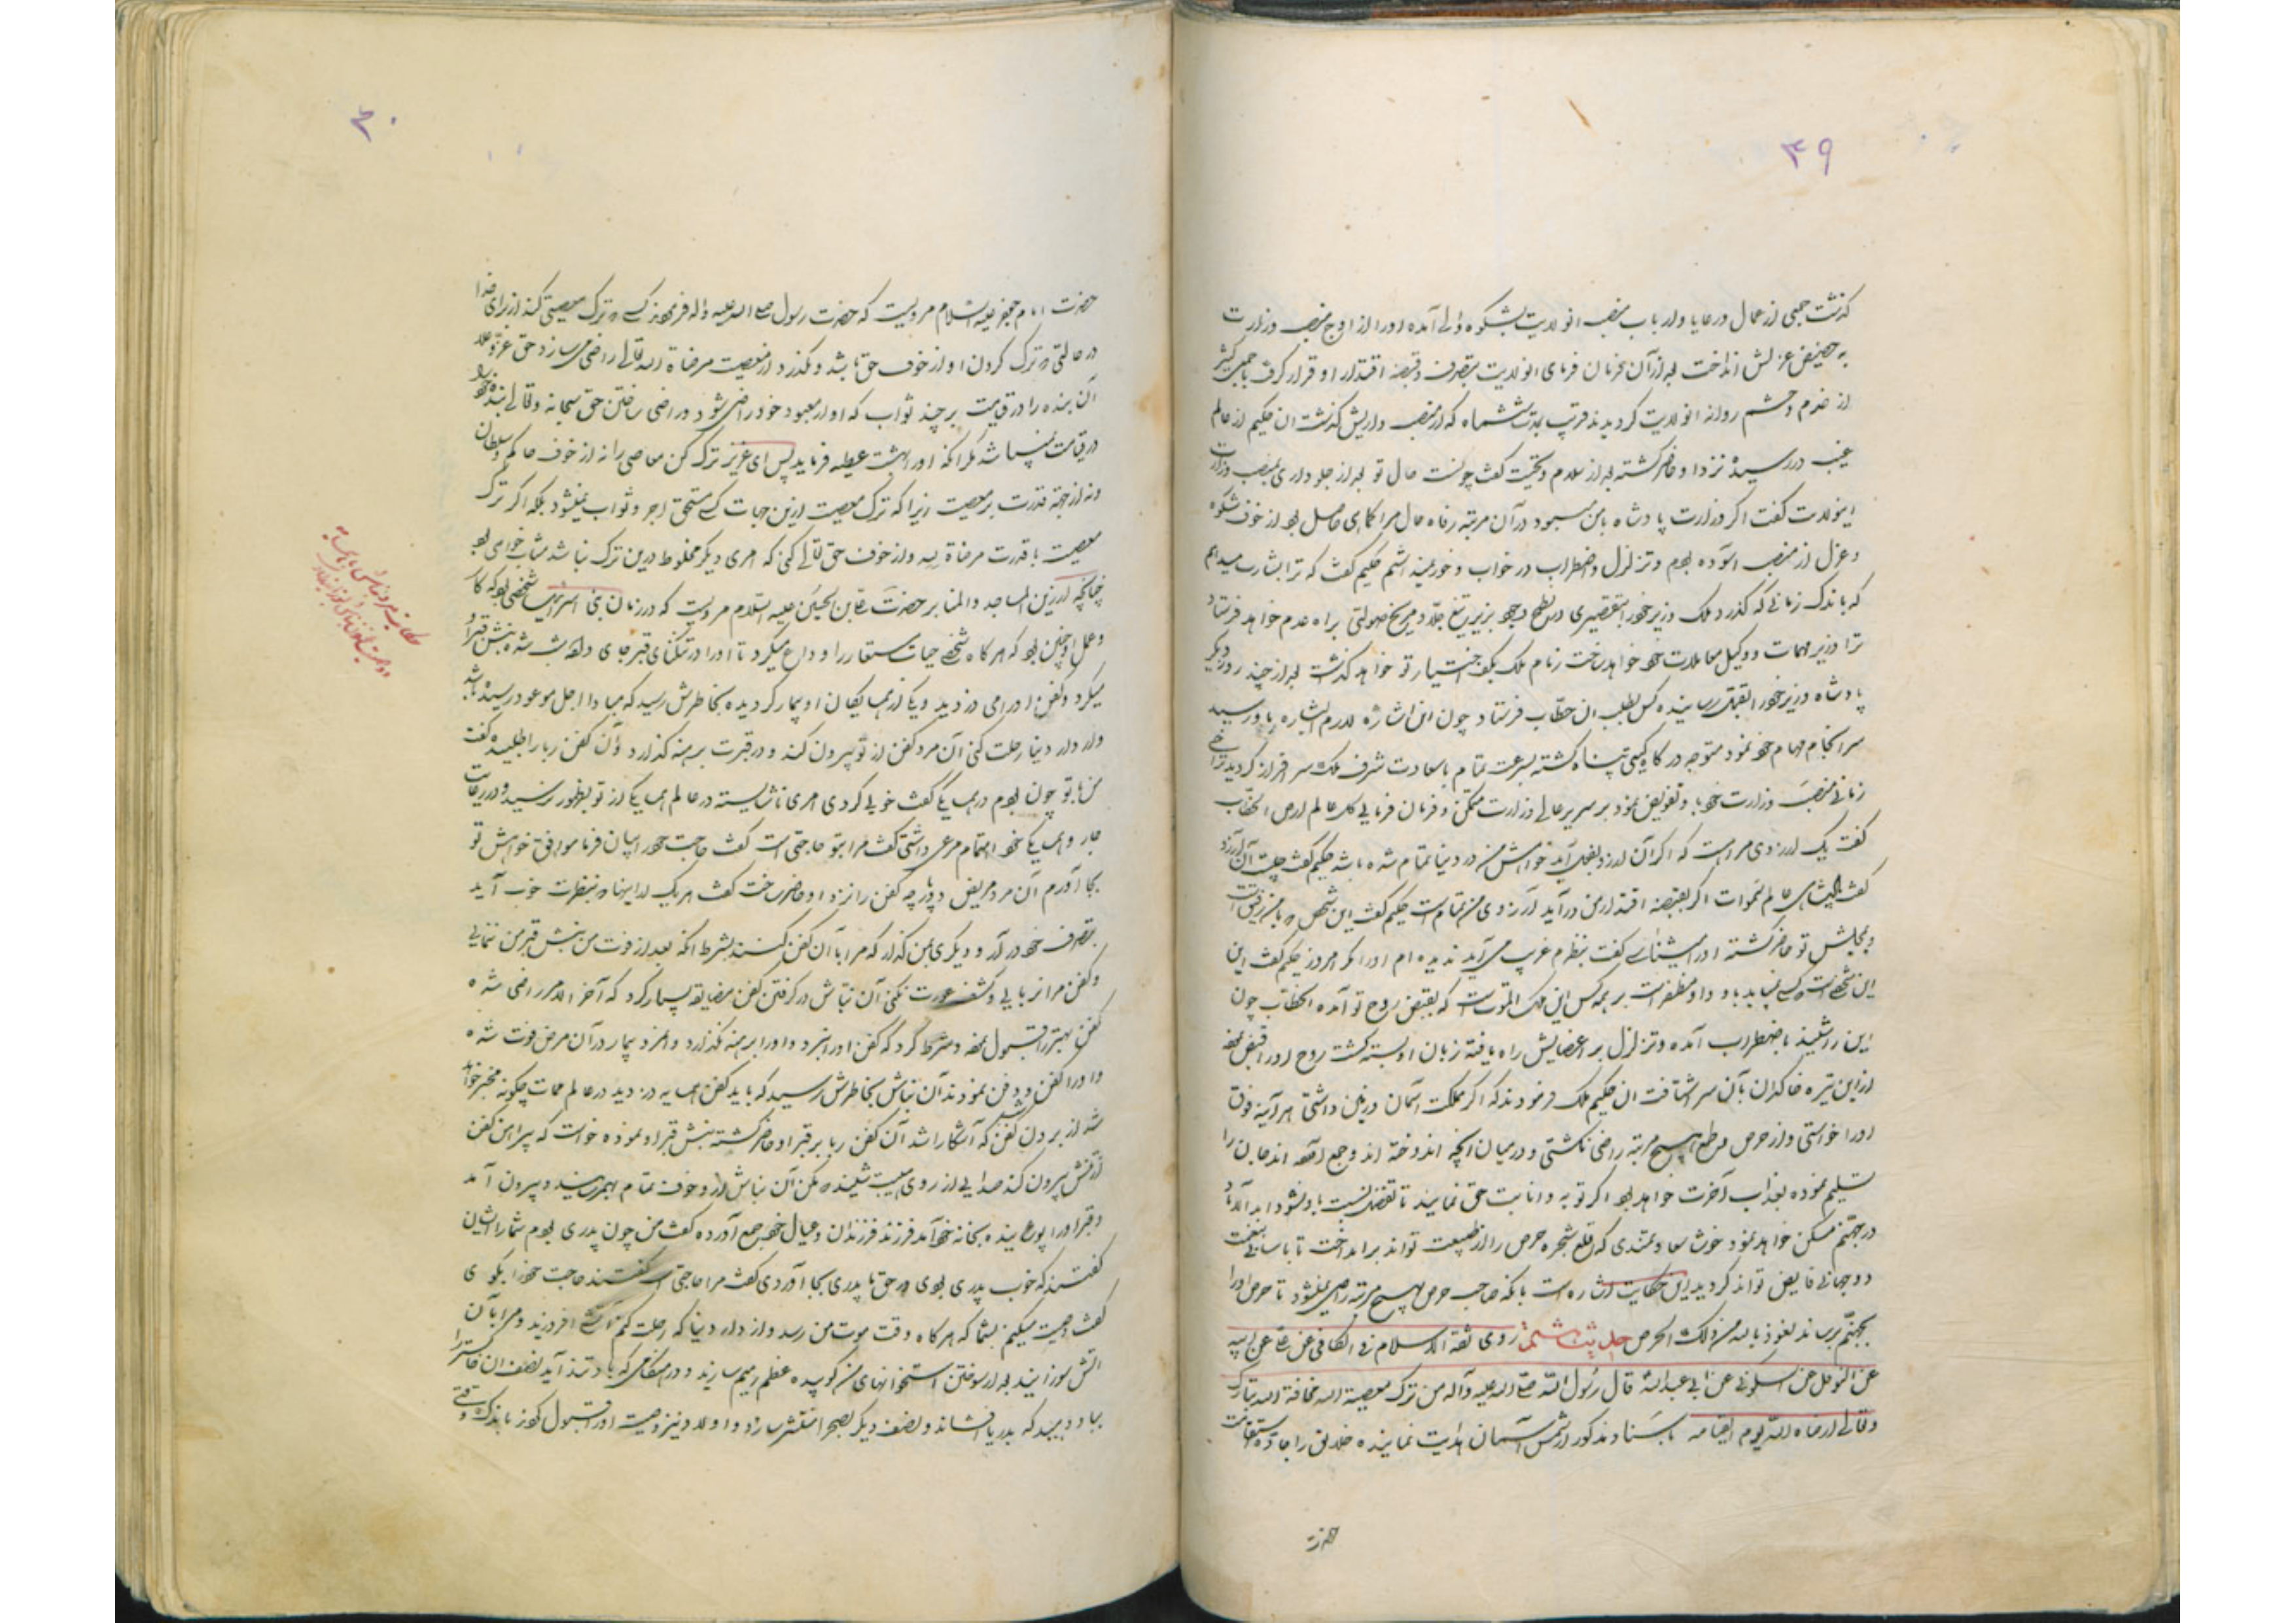 ۳۹
گذشت جمعی از عمال و رعایا و ارباب منصب انولایت بشکوه والی آمده او را از اوج منصب وزارت
به حضیض عزلش انداخت بعد از آن بفرمان فرمای انولایت بتصرف و قبضه اقتدار او قرار گرفت با جمعی کثیر
از خدم و حشم روانه انولایت گردیدند قریب بمدت ششماه که از منصب داریش گذشت ان حکیم از عالم
غیب در رسیده نزد او حاضر گشته بعد از سلام و تحیت گفت چونست حال تو بعد از جلوداری بمنصب وزارت
اینولایت گفت اگر وزارت پادشاه بامن میبود در آن مرتبه رفاه حال مرا کماهی حاصل بود از خوف شکوه
و عزل از منصب آسوده بودم و تزلزل و اضطراب در خواب و خور نمیداشتم حکیم گفت که ترا بشارت میدهم
که باندک زمانی که گذرد ملک وزیر خود را بتقصیری در نطع وجود بزیر تیغ جلاد مریخ صولتی براه عدم خواهد فرستاد
ترا وزیر مهمات و وکیل معاملات خود خواهد ساخت زمام ملک بکف اختیار تو خواهد گذشت بعد از چند روز دیگر
پادشاه وزیر خود را بقتل رسانیده کس بطلب ان حطاب فرستاد چون ان اشارهٔ لازم البشاره باو رسید
سرانجام مهام خود نمود متوجه درگاه گیتی پناه گشته بسرعت تمام باسعادت شرف ملک سرافراز گردید در آخر
زمانی منصب وزارت خود باو تفویض نمود بر سریر عالی وزارت متمکن و فرمان فرمایی کل عالم ارض الحطاب
گفت یک ارزوی مراست که اگر آن ارزو بفعل آید خواهش من در دنیا تمام شده باشد حکیم گفت چیست آن ارزو
گفت پادشاهی عالم سموات اگر بقبضه اقتدار من درآید آرزوی من تمامست حکیم گفت این شخص که بامن رفیق است
و بمجلس تو حاضر گشته او را میشناسی گفت بنظرم غریب می آید ندیده ام او را مگر امروز حکیم گفت این
این شخصی است که کسی نیاید باو و او مظفر است بر همه کس این ملک الموتست که بقبض روح تو آمده الحطاب چون
این را شنید باضطراب آمده و تزلزل بر اعضایش راه یافته زبان او بسته گشت روح او را قبض نمود
از این تیره خاکدان بآن سر اشتافت ان حکیم ملک فرمودند که اگر مملکت آسمان و زمین داشتی هر آینه فوق
او را خواستی و از حرص و طمع بهیچ مرتبه راضی نگشتی و در میان انچه اندوخته اند و جمع آمده اند جان را
تسلیم نموده بعذاب آخرت خواهد بود اگر توبه و انابت حق نمایند تا تفضل نسبت باو نشود ابد الاباد
در جهنم مسکن خواهد نمود خوش سعادتمندی که قلع شجره حرص را از طبیعت تواند برانداخت تا باسانی بنعمت
دو جهانی فایض تواند گردید این حکایت اشاره است بانکه صاحب حرص بهیچ مرتبه راضی نمیشود تا حرص او را
بجهنم برساند نعوذ بالله من ذلک الحرص حدیث ششم روی ثقة الاسلام فی الکافی عن علی عن ابیه
عن النوفلی عن السکونی عن ابی عبدالله قال رسول الله صلی الله علیه وآله من ترک معصیة الله مخافة الله تبارک
وتعالی ارضاه الله یوم القیامه باسناد مذکور از شمس آسمان هدایت نماینده خلایق را جاده استقامت
حضرت
۴۰
حضرت امام جعفر علیه السلام مرویست که حضرت رسول صلی الله علیه واله فرمودند کسی که ترک معصیتی کند از برای خدا
در حالتی که ترک کردن او از خوف حق باشد و بگذرد از معصیت مرضاة الله تعالی راضی می سازد حق عز و علا
آن بنده را در قیامت بر چند ثواب که او از معبود خود راضی شود و راضی ساختن حق سبحانه وتعالی بنده خود را
در قیامت نمیباشد مگر انکه او را بهشت عطیه فرماید پس ای عزیز ترک کن معاصی را نه از خوف حاکم و سلطان
و نه از جهة قدرت بر معصیت زیرا که ترک معصیت ازین جهات کسی مستحق اجر و ثواب نمیشود بلکه اگر ترک
معصیت با قدرت مرضاة لله و از خوف حق تعالی کنی که امری دیگر مخلوط درین ترک نباشد مثاب خواهی بود
چنانچه در زین المساجد والمنابر حضرت علی بن الحسین علیه السلام مرویست که در زمان بنی اسرائیل شخصی بود که کار
و عمل او چنین بود که هر گاه شخصی حیات مستعار را وداع میکرد تا او را در تنگنای قبر جای داده شب شده نبش قبر او
میکرد و کفن او را می دزدید و یکی از همسایگان او بیمار گردیده بخاطرش رسید که مبادا اجل موعود رسیده باشد
و از دار دنیا رحلت کنی آن مرد کفن از تو بیرون کند و در قبرت برهنه گذارد و آن کفن ربا را طلبیده گفت
من با تو چون بودم در همسایگی گفت خوبی کردی امری ناشایسته در عالم همسایگی از تو بظهور نرسید و در رعایت
جار و همسایگی خود اهتمام مرعی داشتی گفت مرا بتو حاجتی است گفت حاجت خود را بیان فرما موافق خواهش تو
بجا آورم آن مرد مریض دو پارچه کفن را نزد او حاضر ساخت گفت هر یک از اینها که بنظرت خوب آید
بتصرف خود درآر و دیگری بمن گذار که مرا با آن کفن کنند بشرط انکه بعد از فوت من نبش قبر من ننمایی
و کفن مرا نربایی و کشف عورت نکنی آن نباش در گرفتن کفن مضایقه بسیار کرد که آخر الامر راضی شده
کفن بهتر را قبول نموده و شرط کرد که کفن او را نبرد و او را برهنه نگذارد و آنمرد بیمار در آن مرض فوت شده
و او را کفن و دفن نمودند آن نباش بخاطرش رسید که باید کفن همسایه دزدید در عالم ممات چگونه مخبر خواهد
شد از بردن کفن که آشکارا شد آن کفن ربا بر قبر او حاضر گشته نبش قبر او نموده خواست که پیراهن کفن
از تنش بیرون کند صدایی از روی هیبت شنید که مکن آن نباش از خوف تمام بهم رسید و بیرون آمد
و قبر او را پوشانیده بخانه خود آمد فرزند فرزندان و عیال خود جمع آورده گفت من چون پدری بودم شما را ایشان
گفتند که خوب پدری بودی و حق ما پدری بجا آوردی گفت مرا حاجتی است گفتند حاجت خود را بگوی
گفت وصیت میکنم بشما که هر گاه وقت موت من رسد و از دار دنیا که رحلت کنم آتشی افروزید و مرا بآن
اتش سوزانید بعد از سوختن استخوانهای من کوبیده عظم رمیم سازید و در هنگامی که باد تند آید نصف ان خاکستر را
بباد دهید که بدریا افشاند و نصف دیگر بصحرا منتشر سازد و اولاد نیز وصیت او را قبول کردند باندک وقتی